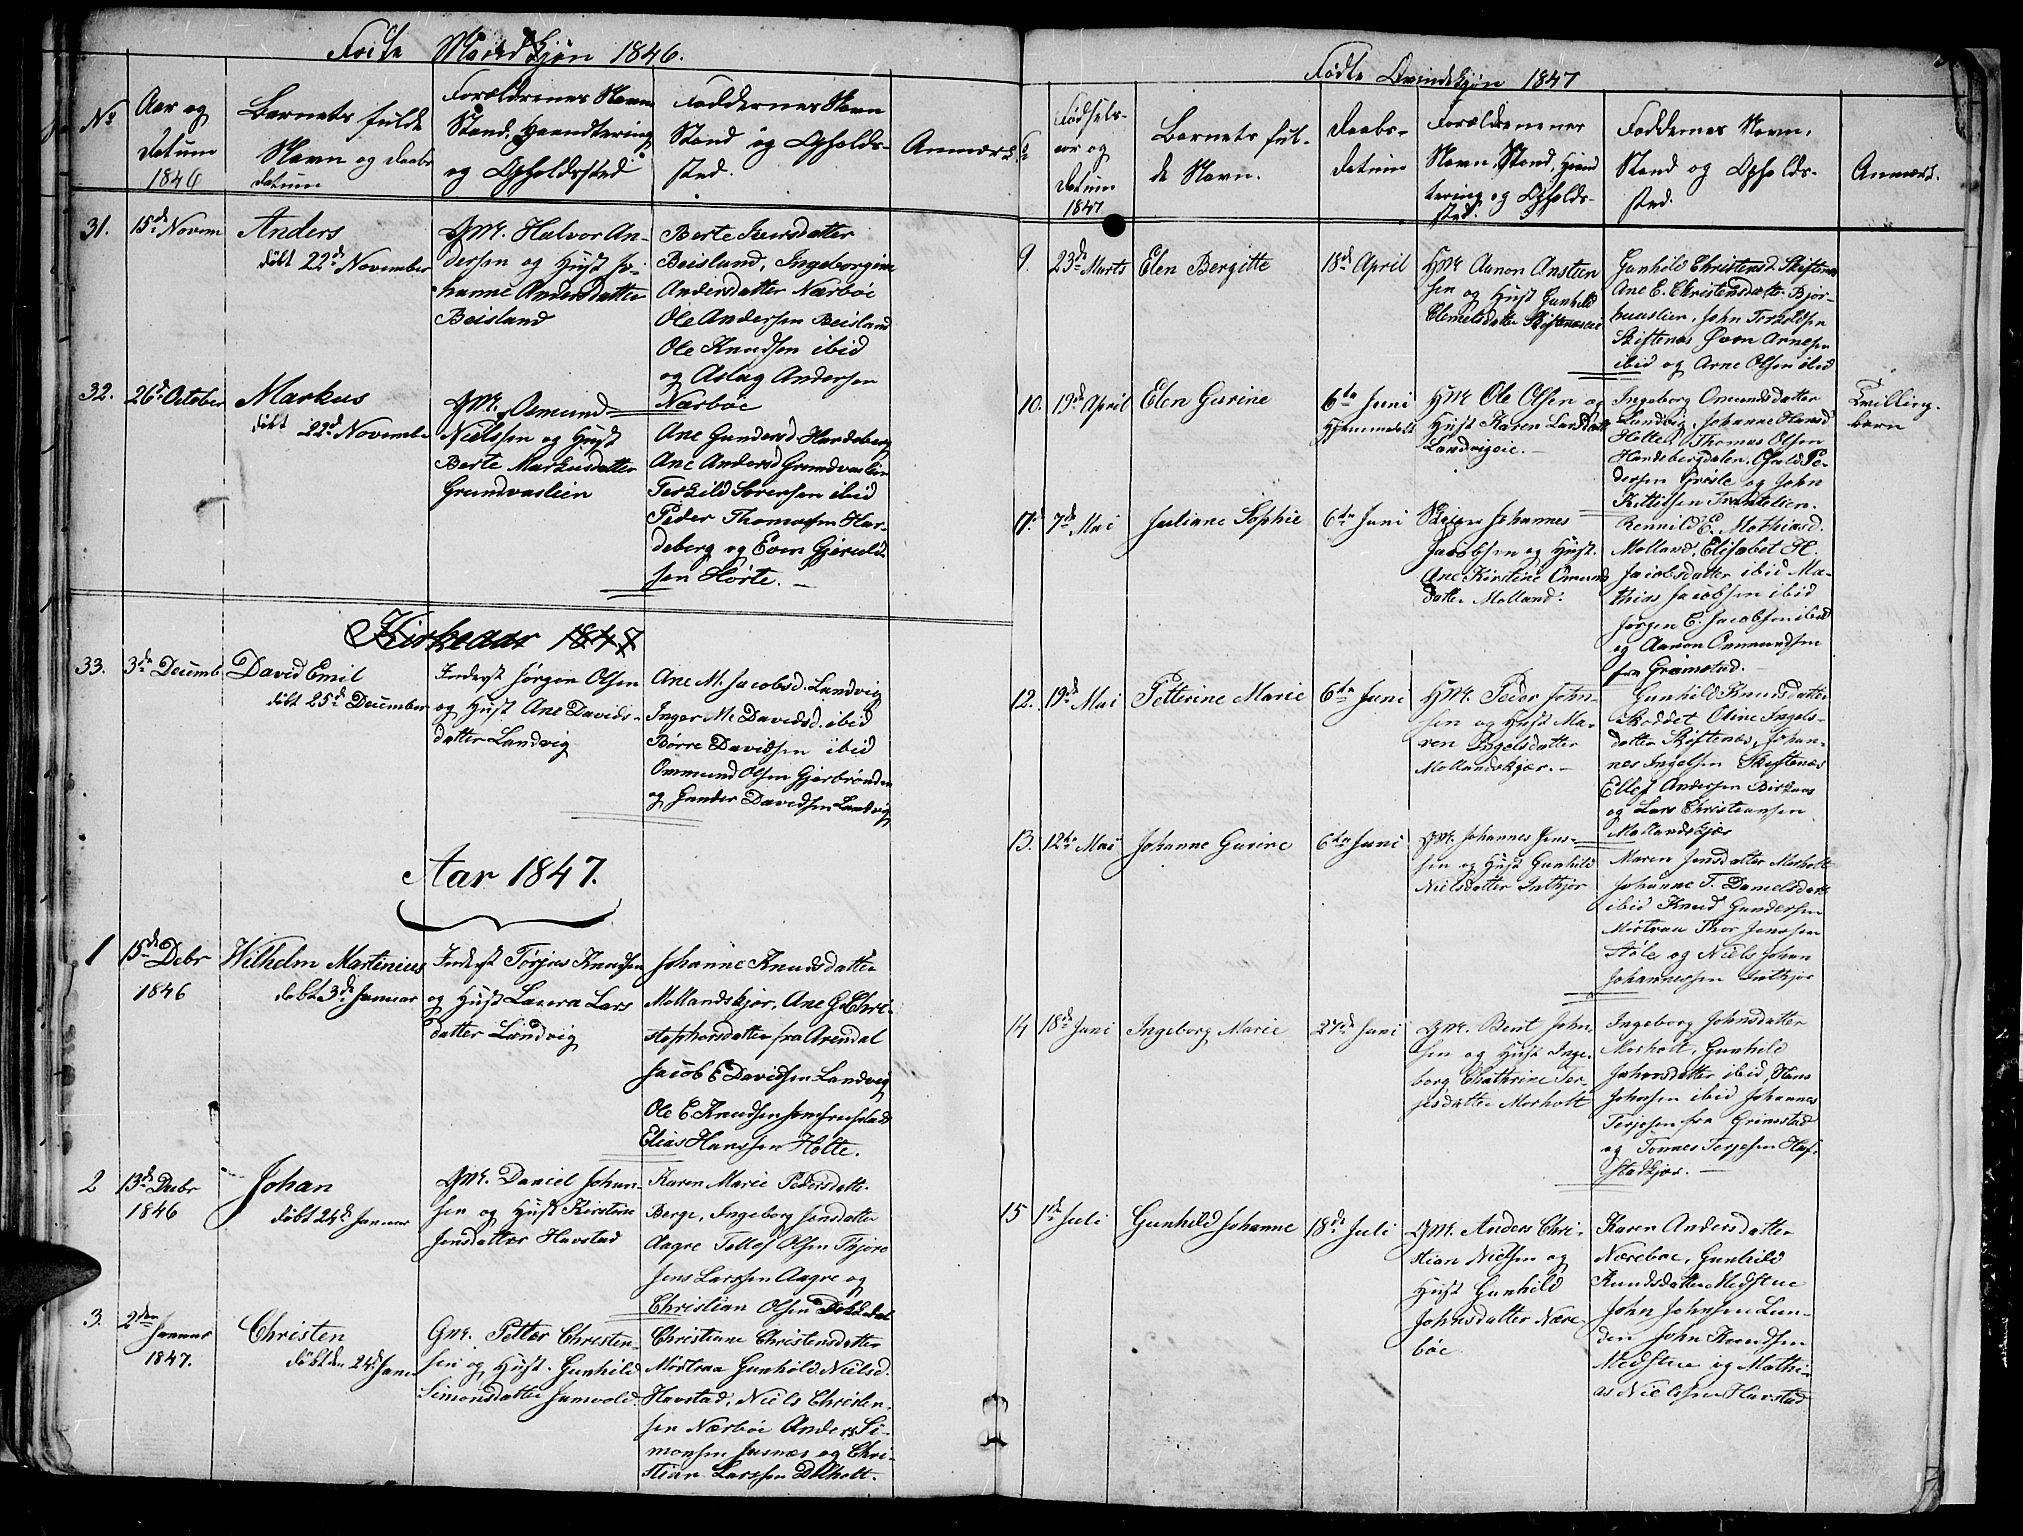 Fødte Mandkjøn 1846.
No
Aar og
Datum
1846
Barnets fulde
Navn og Daabs
datum
Forældrenes Navn
Stand, Haandtering
og Opholdsted
Faddernes Navn
Stand og Opholds-
sted.
Anmærk
31.
15de Novem
Anders
døbt 22de November
Gmd. Halvor An-
dersen og Hust Jo-
hanne Andersdatter
Beisland
Berte Larsdatter
Beisland, Ingeborgine
Andersdatter Nærbøe
Ole Andersen Beisland
Ole Knudsen ibid
og Aslag Andersen
Nærbøe
32.
26de October
Markus
døbt 22de Novembr
Gmd. Osmund
Nielssen og Hust
Berte Markusdatter
Grundvaslien
Ane Gundersd Hardeberg
Ane Andersd Grundvaslien
Terkild Sørensen ibid
Peder Thomassen Har-
deberg og Even Gjeruld-
sen Hørte.
Kirkeaar 1847
33.
3de Decemb
David Emil
døbt 25de December
Inderst Jørgen Olsen
og Hust Ane Davids-
datter Landvig
Ane M. Jacobsd. Landvig
Inger M. Davidsd. ibid
Børre Davidsen ibid
Ommund Olsen Gjærbrønden
og Gunder Davidsen Landvig
Aar 1847.
1
15de Debr
1846
Wilhelm Martinius
døbt 3de Januar
Inderst Tørjus Knudsen
og Hust Laura Lars
datter Landvig
Johanne Knudsdatter
Mollandskjær, Ane G. Chri-
stophersdatter fra Arendal
Jacob E Davidsen Landvig
Ole E. Knudsen
Elias Hanssen Holte.
2
13de Decbr
1846
Johan
døbt 24de Januar
Gmd. Daniel Johan-
sen og Hust Kirstine
Jensdatter Havstad
Karen Marie Pedersdatter
Berge, Ingeborg Jensdatter
Aagre Tellef Olsen Thjøre
Jens Larssen Aagre og
Christian Olsen Dokkedal
3.
2den
Januar
1847.
Christen
døbt den 24de Janu
Gmd. Petter Christen-
sen og Hust. Gunhild
Simonsdatter Jumvold
Christiane Christensdatter
Mørtraa Gunhild Nielsd.
Havstad, Niels Christen-
sen Nærbøe Anders Si-
monsen Jusnæs og Chri-
stian Larssen Dalholt.
Fødte Qvindekjøn 1847
Fødsels-
aar og
Datum
1847
Barnets ful-
de Navn.
Daabs-
datum
Forældrenenes
Navn, Stand, Haand
tering og Opholds-
sted.
Faddernes Navn,
Stand og Opholds-
sted.
Anmærk.
9.
23de Marts
Elen Bergitte
18de April
Gmd. Aanon Ansten
sen og Hust Gunhild
Clemetsdatter Skiftenæsei
Gunhild Christensd. Skiftenæs
Ane E. Christensdatter Bjor-
huuslien, John Terkelsen
Skiftenæs Øven Arnesen
ibid og Arne Olsen ibid
10.
19de April
Elen Gurine
6te Juni
Hjemmedøbt
Gmd. Ole Olsen og
Hust Karen Larsdatt
Landvigeie.
Ingeborg Omundsdatter
Landvig, Johanne Hansd
Holte, Thomas Olsen
Hardebergdalen, Osuld Pe-
dersen Groste og John
Kittilsen
Tvilling-
barn
7de Mai
Juliane Sophie
6te Juni
Skipper Johannes
Jacobsen og Hust.
Ane Kirstine Omund
datter Molland.
Rennild E. Mathiasd.
Molland, Elisabet H.
Jacobsdatter ibid Ma-
thias Jacobsen ibid
Jørgen E. Jacobsen ibid
og Aanon Ommundsen
fra Grimstad.
12.
19de Mai
Petterine Marie
6te Juni
Gmd. Peder John-
sen og Hust Ma-
ren Ingelsdatter
Mollandskjær.
Gunhild Knudsdatter
Skoddet Oline Ingels-
datter Skiftenæs, Johan-
nes Ingelsen Skiftenæs
Ellef Andersen Birkenes
og Lars Christiansen
Mollandskjær
13.
12te Mai
Johanne Gurine
6te Juni
Gmd. Johannes Jens-
sen og Hust Gunhild
Nielsdatter Intkjør
Maren Jensdatter Morholt
Johanne T. Danielsdatter
ibid Knud Gundersen
Mørtraa Thor Jenssen
Støle og Niels Johan
Johannessen Intkjør
14
18de Juni
Ingeborg Marie
27de Juni
Gmd. Bent John
sen og Hust Inge-
borg Chathrine Ter-
jesdatter Morholt
Ingeborg Johnsdatter
Morholt, Gunhild
Johnsdatter ibid, Hans
Johnsen ibid Johannes
Terjesen fra Grimstad
og Tønnes Terjesen Haf-
stadkjær.
15
1ste Juli
Gunhild Johanne
18de Juli
Gmd. Anders Chri-
stian Nielsen og
Hust Gunhild
Johnsdatter Nære-
bøe
Karen Andersdatter
Nærebøe, Gunhild
Knudsdatter Medstue
John Johnsen Lun-
den John Knudsen
Medstue og Mathi-
as Nielsen Havstad